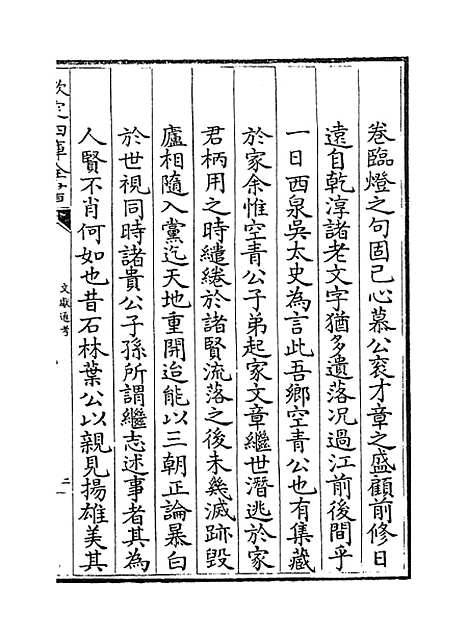 卷臨燈之句固已心慕公衮才章之盛顧前修日
遠自乾淳諸老文字猶多遺落况過江前後間乎
一日西泉吳太史為言此吾鄉空青公也有集藏
於家余惟空青公子弟起家文章繼世潛逃於家
君柄用之時繾綣於諸賢流落之後未幾滅跡毁
廬相隨入黨迄天地重開迨能以三朝正論暴白
於世視同時諸貴公子孫所謂繼志述事者其為
人賢不肖何如也昔石林葉公以親見揚雄美其
欽定四庫全書
文獻通考
二